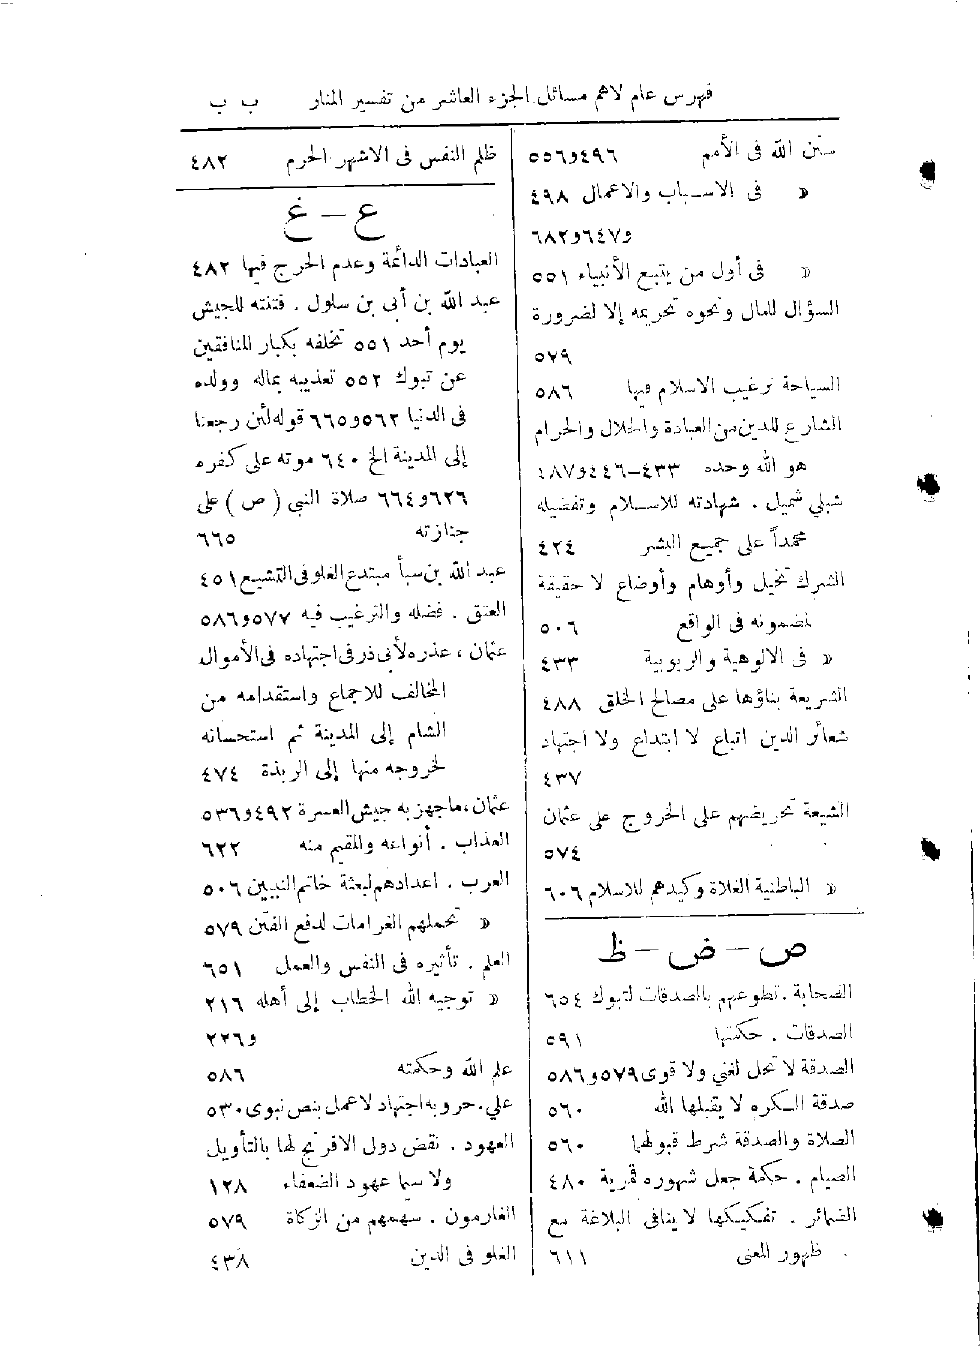 فهرس عام لاهم مسائل الجزء العاشر من تفسير المنار ب ب
سنن الله فى الأمم ٤٩٦و٥٥٦
» فى الاسباب والاعمال ٤٩٨
و٦٤٧و٦٨٢
» فى أول من يتبع الأنبياء ٥٥١
السؤال للمال ونحوه تحريمه إلا لضرورة
٥٧٩
السياحة ترغيب الاسلام فيها ٥٨٦
الشارع للدين من العبادة والحلال والحرام
هو الله وحده ٤٣٣-٤٤٦و٤٨٧
شبلي شميل . شهادته للاسلام وتفضيله
محمداً على جميع البشر ٤٢٤
الشرك تخيل وأوهام وأوضاع لا حقيقة
لمضمونه فى الواقع ٥٠٦
» فى الالوهية والربوبية ٤٣٣
الشريعة بناؤها على مصالح الخلق ٤٨٨
شعائر الدين اتباع لا ابتداع ولا اجتهاد
٤٣٧
الشيعة تحريضهم على الخروج على عثمان
٥٧٤
» الباطنية الغلاة وكيدهم للاسلام ٦٠٦
ص – ض – ظ
الصحابة . تطوعهم بالصدقات لتبوك ٦٥٤
الصدقات . حكمتها ٥٩١
الصدقة لا تحل لغني ولا قوى ٥٧٩و٥٨٦
صدقة السكره لا يقبلها الله ٥٦٠
الصلاة والصدقة شرط قبولهما ٥٦٠
الصيام . حكمة جعل شهوره قمرية ٤٨٠
الضمائر . تفكيكها لا ينافى البلاغة مع
ظهور المعنى ٦١١
ظلم النفس فى الاشهر الحرم ٤٨٢
ع – غ
العبادات الدائمة وعدم الحرج فيها ٤٨٢
عبد الله بن أبي بن سلول . فتنته للجيش
يوم أحد ٥٥١ تخلفه بكبار المنافقين
عن تبوك ٥٥٢ تعذيبه بماله وولده
فى الدنيا ٥٦٢و٦٦٥ قوله لئن رجعنا
إلى المدينة الخ ٦٤٠ موته على كفره
٦٢٦و٦٦٤ صلاة النبي ( ص ) على
جنازته ٦٦٥
عبد الله بن سبأ مبتدع الغلو فى التشيع ٤٥١
العتق . فضله والترغيب فيه ٥٧٧و٥٨٦
عثمان ، عذره لأبى ذر فى اجتهاده فى الأموال
المخالف للاجماع واستقدامه من
الشام إلى المدينة ثم استحسانه
لخروجه منها إلى الربذة ٤٧٤
عثمان، ماجهز به جيش العسرة ٤٩٢و٥٣٦
العذاب . أنواعه والمقيم منه ٦٢٢
العرب . اعدادهم لبعثة خاتم النبيين ٥٠٦
» تحملهم الغرامات لدفع الفتن ٥٧٩
العلم . تأثيره فى النفس والعمل ٦٥١
» توجيه الله الخطاب إلى أهله ٢١٦
و٢٢٦
علم الله وحكمته ٥٨٦
علي. حروبه اجتهاد لا عمل بنص نبوى ٥٣٠
العهود . نقض دول الافرنج لها بالتأويل
ولا سيما عهود الضعفاء ١٢٨
الغارمون . سهمهم من الزكاة ٥٧٩
الغلو فى الدين ٤٣٨